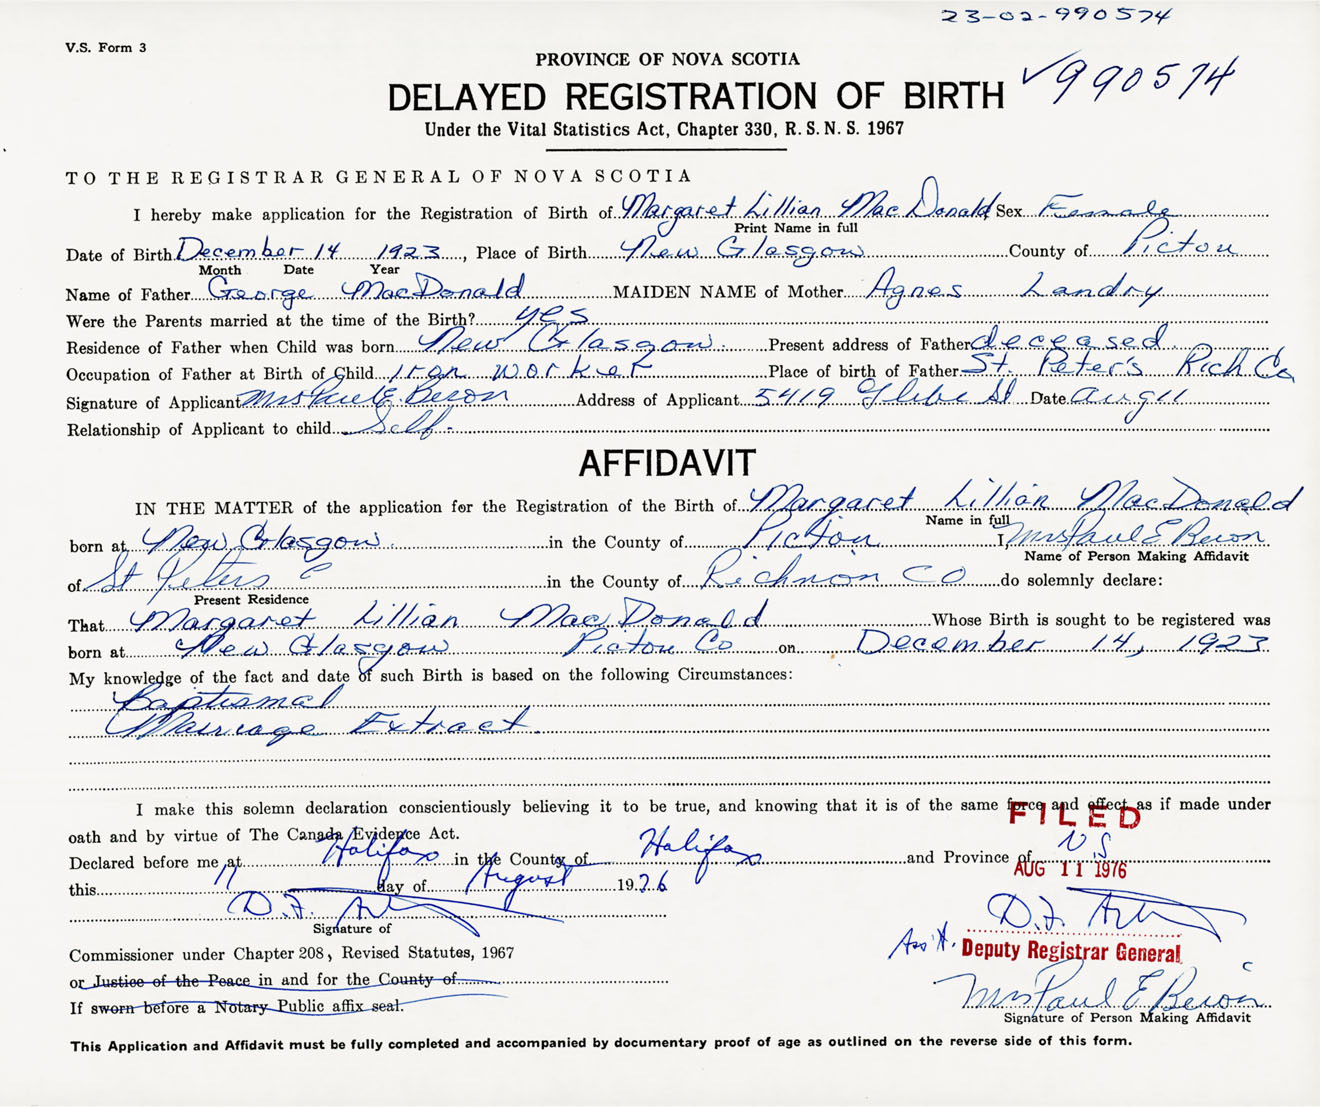 23-02-990574
V.S. Form 3
PROVINCE OF NOVA SCOTIA
DELAYED REGISTRATION OF BIRTH ✓990574
Under the Vital Statistics Act, Chapter 330, R. S. N. S. 1967
TO THE REGISTRAR GENERAL OF NOVA SCOTIA
I hereby make application for the Registration of Birth of Margaret Lillian MacDonald Sex Female
Print Name in full
Date of Birth December 14 1923, Place of Birth New Glasgow County of Picton
Month Date Year
Name of Father George MacDonald MAIDEN NAME of Mother Agnes Landry
Were the Parents married at the time of the Birth? yes
Residence of Father when Child was born New Glasgow. Present address of Father deceased
Occupation of Father at Birth of Child Iron worker Place of birth of Father St. Peter's Rich Co
Signature of Applicant Mrs Paul E. Beson Address of Applicant 5419 Glebe St Date Aug 11
Relationship of Applicant to child Self.
AFFIDAVIT
IN THE MATTER of the application for the Registration of the Birth of Margaret Lillian MacDonald
Name in full
born at New Glasgow. in the County of Picton I, Mrs Paul E Beson
Name of Person Making Affidavit
of St Peters in the County of Richmon CO do solemnly declare:
Present Residence
That Margaret Lillian MacDonald Whose Birth is sought to be registered was
born at New Glasgow Picton Co on December 14, 1923
My knowledge of the fact and date of such Birth is based on the following Circumstances:
Baptismal
Marriage Extract.
I make this solemn declaration conscientiously believing it to be true, and knowing that it is of the same force and effect as if made under
FILED
oath and by virtue of The Canada Evidence Act.
Declared before me at Halifax in the County of Halifax and Province of NS
AUG 11 1976
this 11 day of August 1976
D.F.
Signature of
D.F.
Commissioner under Chapter 208, Revised Statutes, 1967
Ass't. Deputy Registrar General
or Justice of the Peace in and for the County of
If sworn before a Notary Public affix seal.
Mrs Paul E Beson
Signature of Person Making Affidavit
This Application and Affidavit must be fully completed and accompanied by documentary proof of age as outlined on the reverse side of this form.